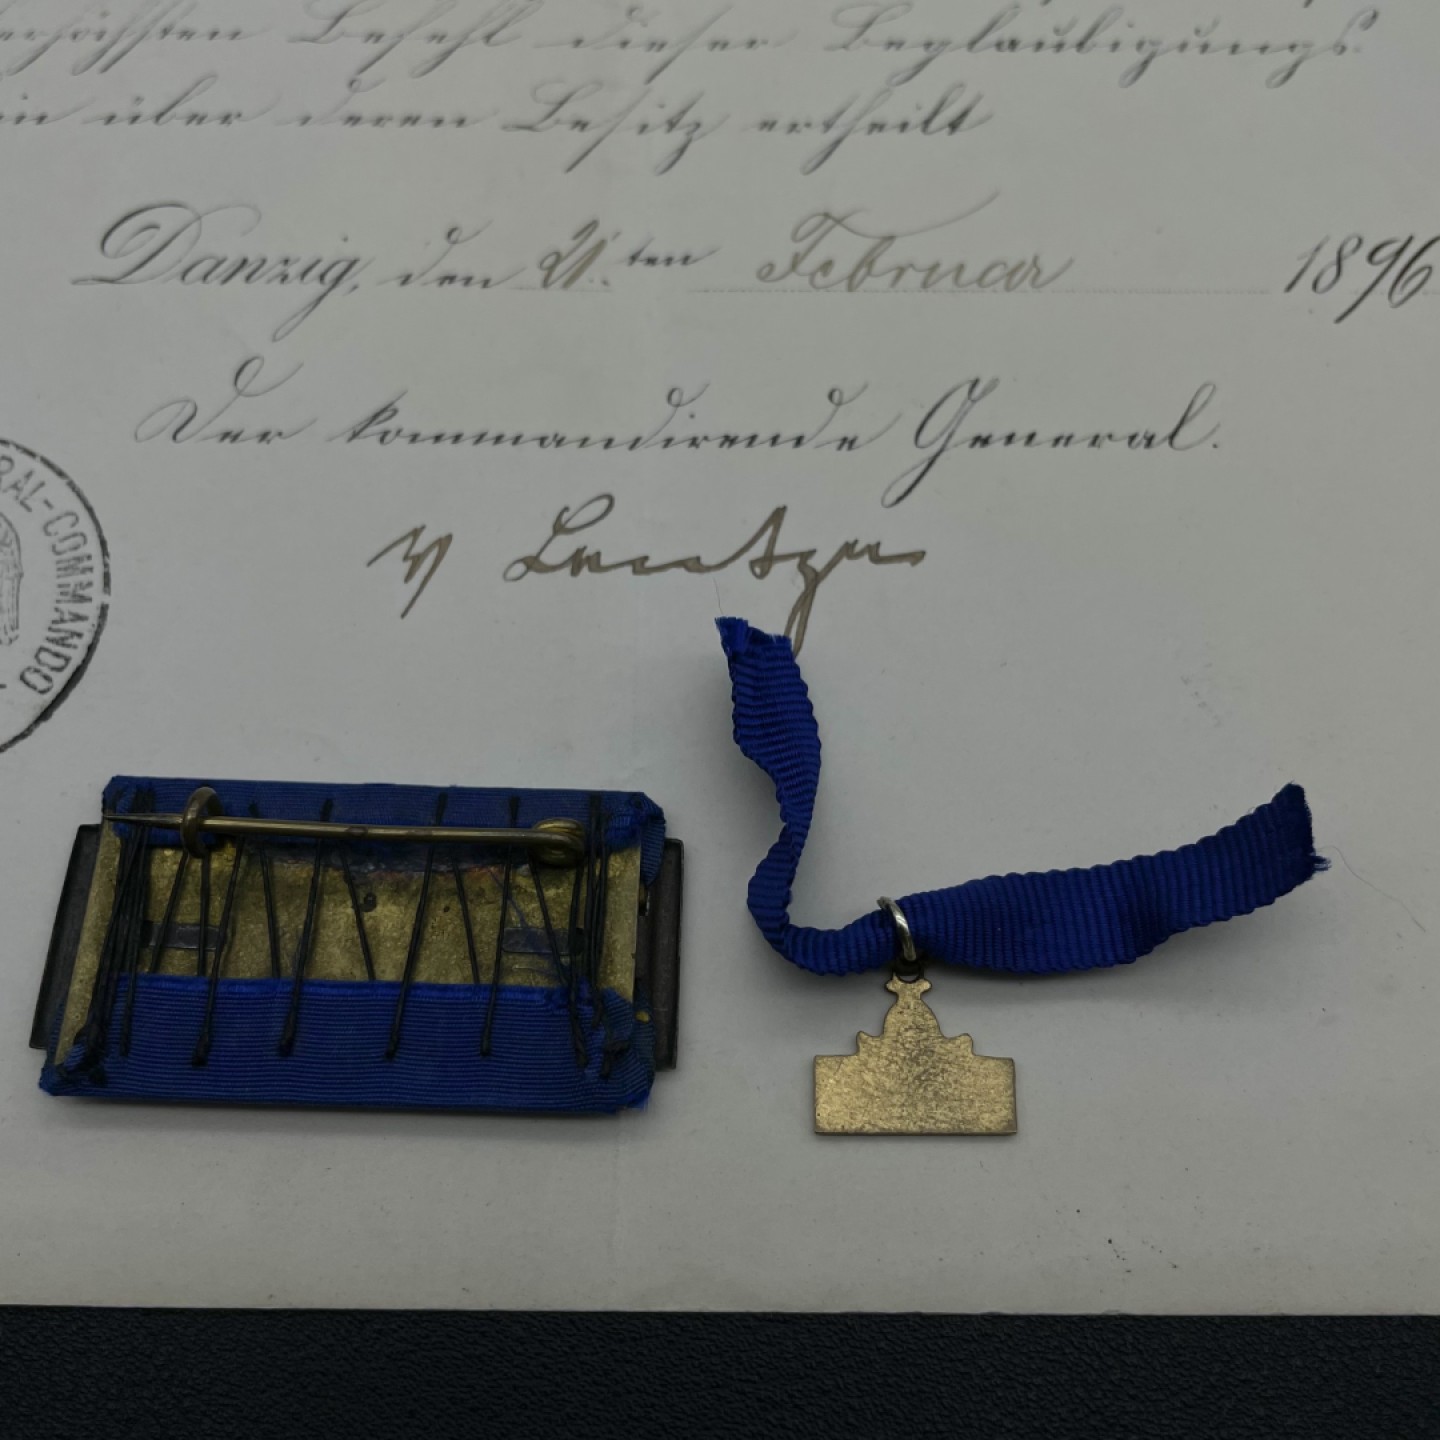 erhöchsten Befehl dieser Beglaubigungs
in über deren Besitz ertheilt
Danzig, den 21.ten Februar 1896
Der kommandirende General.
v Lentze
RAL-COMMANDO